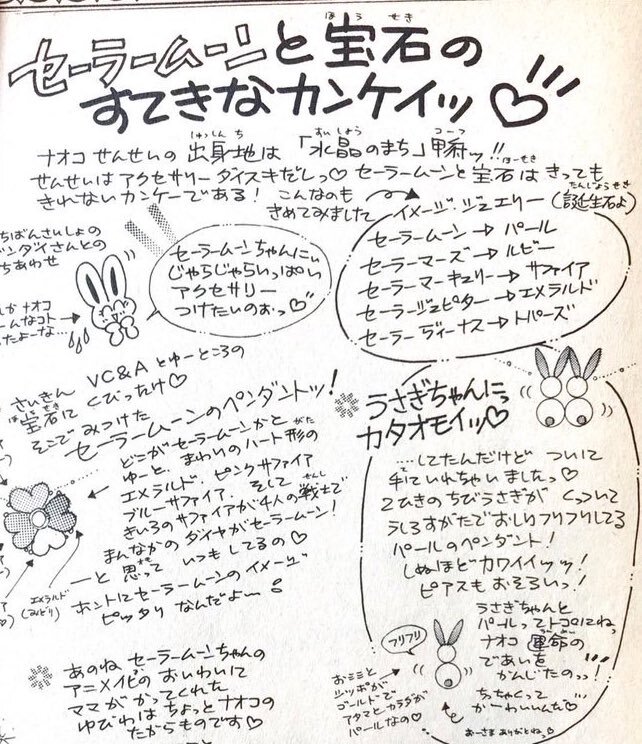 セーラームーンと宝石の
すてきなカンケイッ♡!!!
ナオコせんせいの出身地は「水晶のまち」甲府ッ!!
せんせいはアクセサリーダイスキだしっ♡セーラームーンと宝石はきっても
きれないカンケーである! こんなのも
きめてみました
イメージ・ジュエリー(誕生石よ)
セーラームーン→パール
セーラーマーズ→ルビー
セーラーマーキュリー→サファイア
セーラージュピター→エメラルド
セーラーヴィーナス→トパーズ
ちばんさいしょの
バンダイさんとの
ちあわせ
セーラームーンちゃんにぃ
じゃらじゃらいっぱい
アクセサリー
つけたいのぉっ♡
ナオコ
んなコト
たよーな…
さいきん VC&Aとゆーところの
宝石にくびったけ♡
そこでみつけた
セーラームーンのペンダントッ!
どこがセーラームーンかと
ゆーと、まわりのハート形の
エメラルド、ピンクサファイア
ブルーサファイア、そして
きいろのサファイアが4人の戦士で
まんなかのダイヤがセーラームーン!
ーと思っていつもしてるの♡
ホントにセーラームーンのイメージ
ピッタリなんだよー
エメラルド
(みどり)
あのねセーラームーンちゃんの
アニメ化のおいわいに
ママがかってくれた
ゆびわはちょっとナオコの
たからものです♡
うさぎちゃんにっ
カタオモイッ♡
…してたんだけどついに
手にいれちゃいましたっ♡
2ひきのちびうさぎがくっついて
うしろすがたでおしりフリフリしてる
パールのペンダント!
しぬほどカワイイッッ!
ピアスもおそろいっ!
うさぎちゃんと
パールってトコにねっ
ナオコ運命の
であいを
かんじたのっっ!
ちっちゃくって
かーわいいんだ♡
フリフリ
おミミと
シッポが
ゴールドで
アタマとカラダが
パールなの♡
おーさまありがとねっ